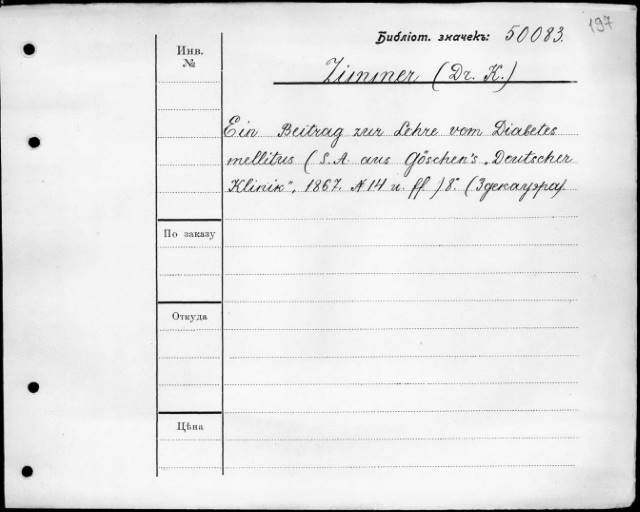 197
Библіот. значекъ: 50083.
Инв.
№
Zimmer (Dr. K.)
Ein Beitrag zur Lehre vom Diabetes
mellitus (S. A. aus Göschen's „Deutscher
Klinik", 1867. N 14 u. ff) 8°. (3 декауэра)
По заказу
Откуда
Цѣна